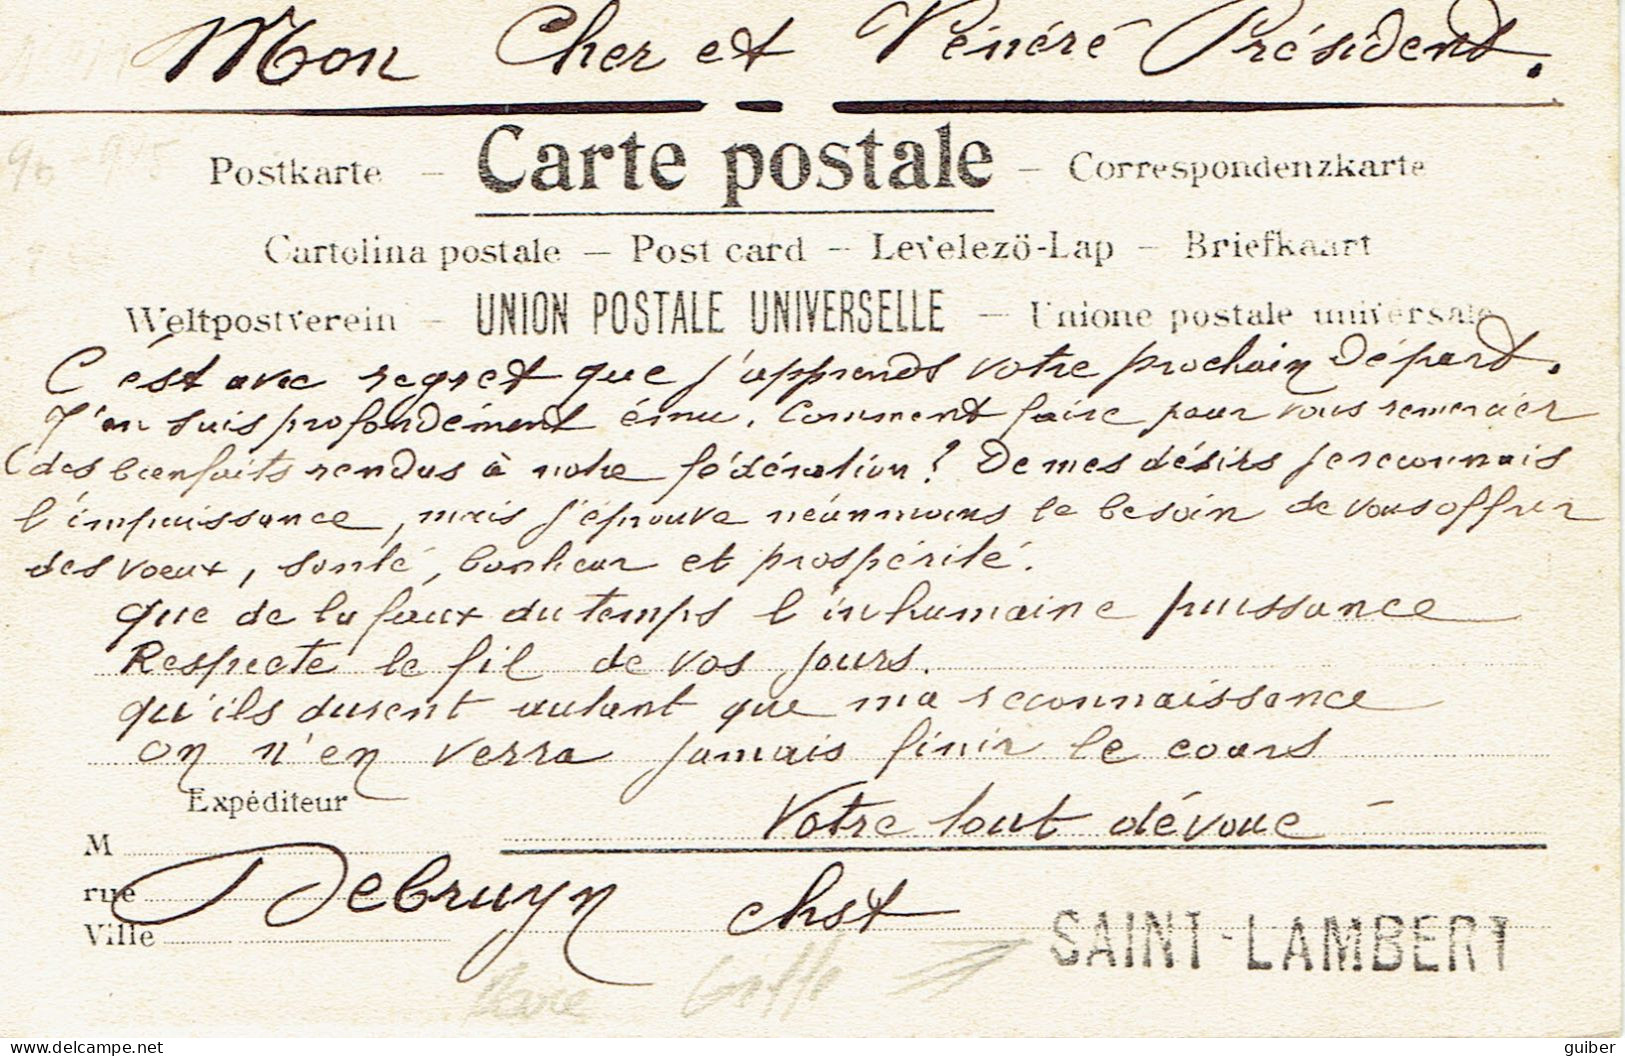 Mon Cher et Vénéré Président.
Postkarte – Carte postale – Correspondenzkarte
Cartolina postale – Post card – Levelezö-Lap – Briefkaart
Weltpostverein – UNION POSTALE UNIVERSELLE – Unione postale universale
C'est avec regret que j'apprends votre prochain départ.
J'en suis profondément ému. Comment faire pour vous remercier
des bienfaits rendus à notre fédération? De mes désirs je reconnais
l'impuissance, mais j'éprouve néanmoins le besoin de vous offrir
des voeux, santé, bonheur et prospérité.
que de la faux du temps l'inhumaine puissance
Respecte le fil de vos jours.
qu'ils durent autant que ma reconnaissance
on n'en verra jamais finir le cours
Expéditeur
Votre tout dévoué
M
rue
Ville
Debruyn chst
SAINT-LAMBERT
Rare Griffe
guiber